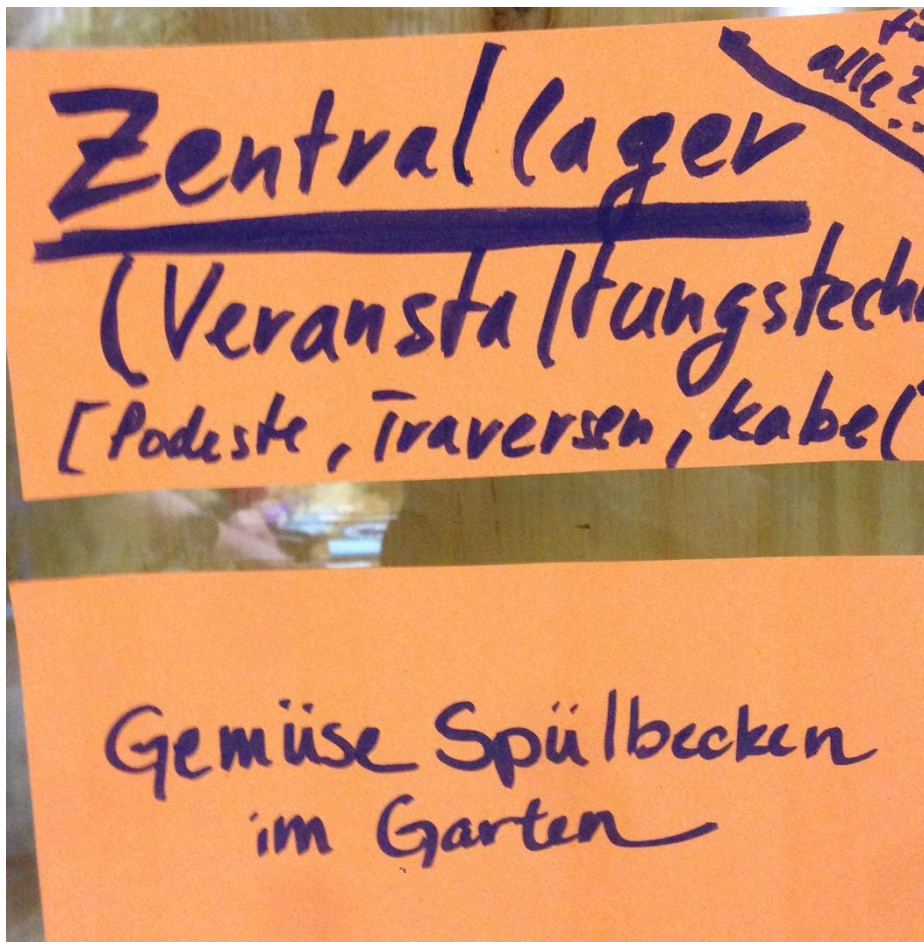 alle
Zentrallager
(Veranstaltungstech
[Podeste, Traversen, Kabel
Gemüse Spülbecken
im Garten